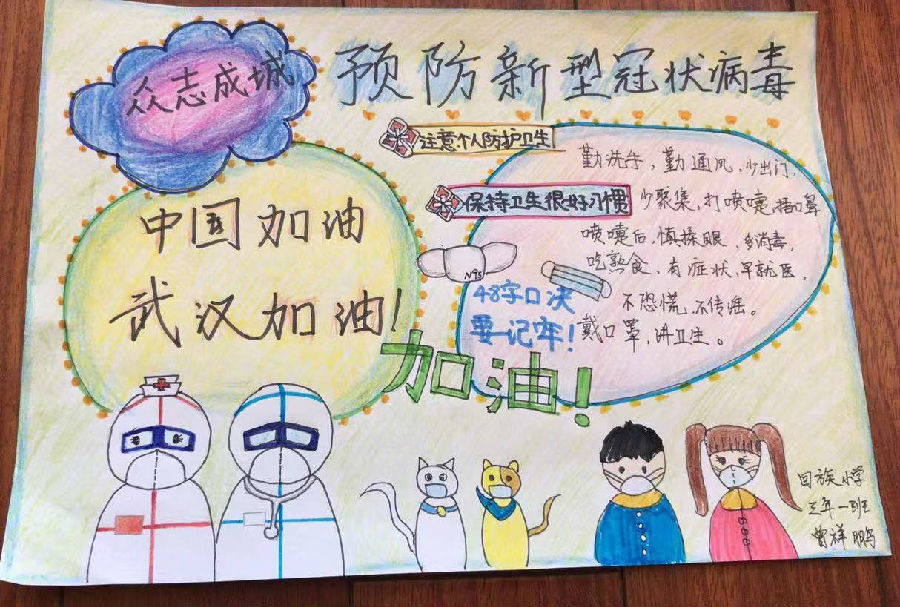 众志成城
预防新型冠状病毒
注意个人防护卫生
保持卫生很好习惯
中国加油
武汉加油!
勤洗手,勤通风,少出门,
少聚集,打喷嚏,捂口鼻
喷嚏后,慎揉眼,多消毒,
吃熟食,有症状,早就医,
不恐慌,不传谣。
戴口罩,讲卫生。
N95
48字口决
要记牢!
加油!
回族小学
三年一班
曾祥鹏